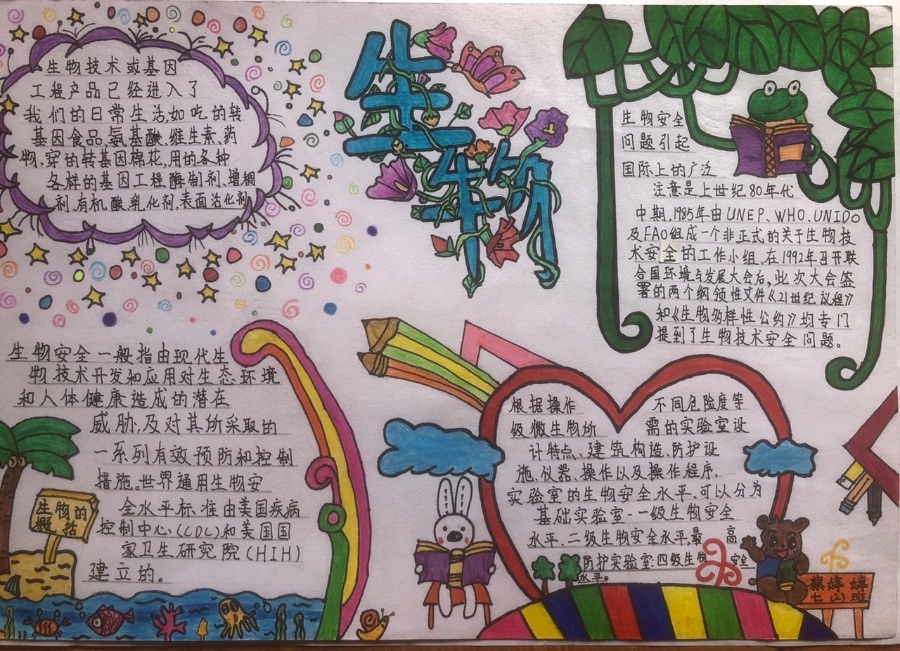 生物
生物技术或基因
工程产品已经进入了
我们的日常生活如吃的转
基因食品,氨基酸、维生素、药
物,穿的转基因棉花,用的各种
各样的基因工程酶制剂,增相
剂,有机酸,乳化剂,表面活化剂
生物安全
问题引起
国际上的广泛
注意是上世纪80年代
中期,1985年由UNEP、WHO、UNIDO
及FAO组成一个非正式的关于生物技
术安全的工作小组,在1992年召开联
合国环境与发展大会后,此次大会签
署的两个纲领性文件《21世纪议程》
和《生物多样性公约》均专门
提到了生物技术安全问题。
生物安全一般指由现代生
物技术开发和应用对生态环境
和人体健康造成的潜在
威胁,及对其所采取的
一系列有效预防和控制
措施。世界通用生物安
全水平标准由美国疾病
控制中心,(CDC)和美国国
家卫生研究院(HIH)
建立的。
生物的
概括
根据操作 不同危险度等
级微生物所 需的实验室设
计特点、建筑构造、防护设
施、仪器、操作以及操作程序.
实验室的生物安全水平,可以分为
基础实验室-一级生物安全
水平,二级生物安全水平,最 高
防护实验室:四级生物 安全
水平。
蔡婷婷
七 班